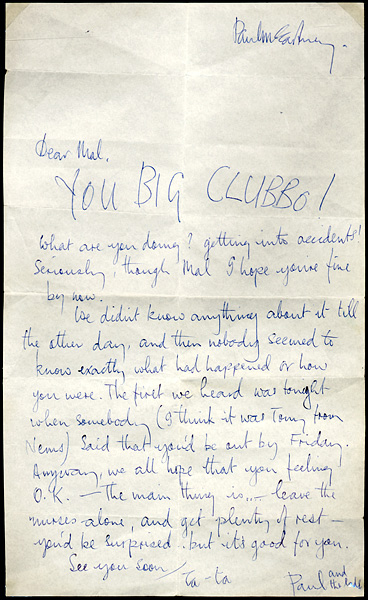 Paul McCartney.
Dear Mal.
YOU BIG CLUBBO!
what are you doing? getting into accidents!
Seriously, though Mal I hope you're fine
by now.
We didn't know anything about it till
the other day, and then nobody seemed to
know exactly what had happened or how
you were. The first we heard was tonight
when somebody (I think it was Tony from
Nems) said that you'd be out by Friday.
Anyway, we all hope that you feeling
O.K. — The main thing is... leave the
nurses alone, and get plenty of rest —
you'd be surprised. but it's good for you.
See you soon
Ta-ta
Paul and the lads